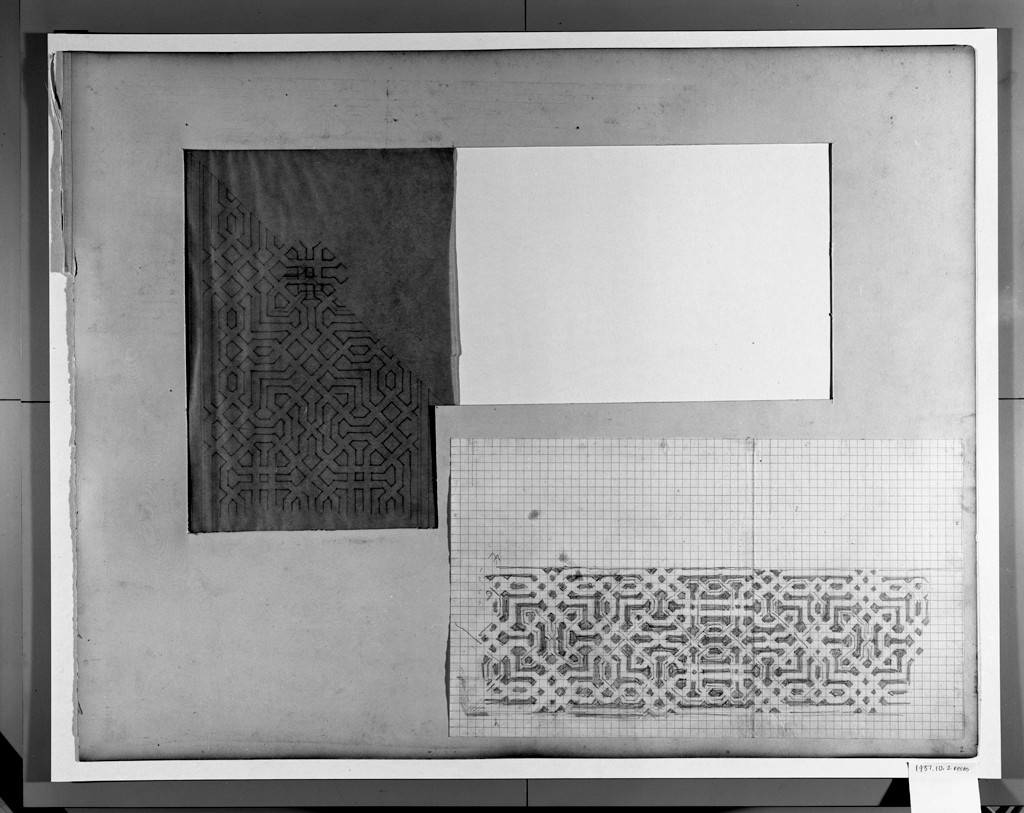 1937.10.2 recto
2